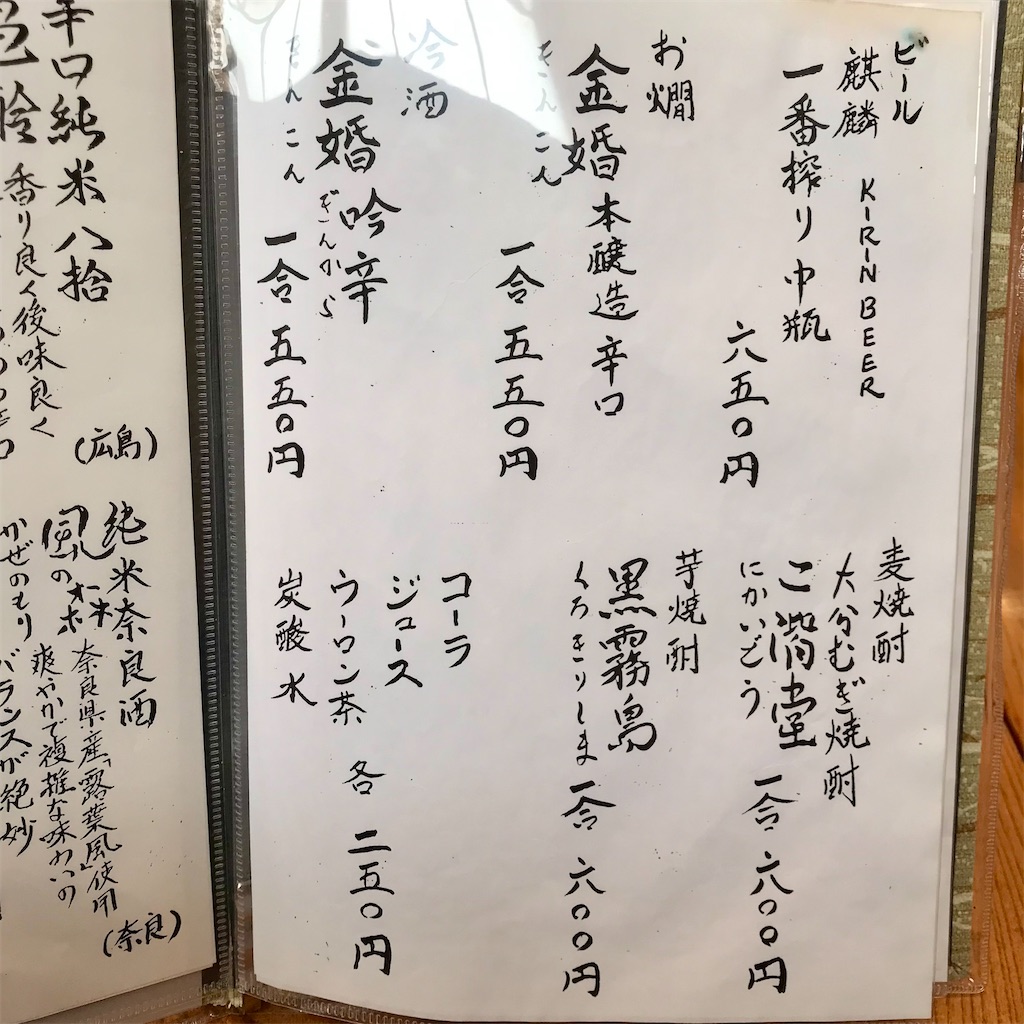 ビール
麒麟 KIRIN BEER
一番搾り中瓶
六五〇円
お燗
金婚本醸造辛口
きんこん
一合 五五〇円
冷酒
金婚吟辛
きんこん ぎんから
一合 五五〇円
麦焼酎
大分むぎ焼酎
二階堂
にかいどう
一合 六〇〇円
芋焼酎
黒霧島
くろきりしま
一合 六〇〇円
コーラ
ジュース
ウーロン茶
炭酸水
各 二五〇円
辛口純米八拾
香り良く後味良く
(広島)
純米奈良酒
風の杜
かぜのもり
奈良県産「露葉風」使用
爽やかで複雑な味わいの
バランスが絶妙
(奈良)